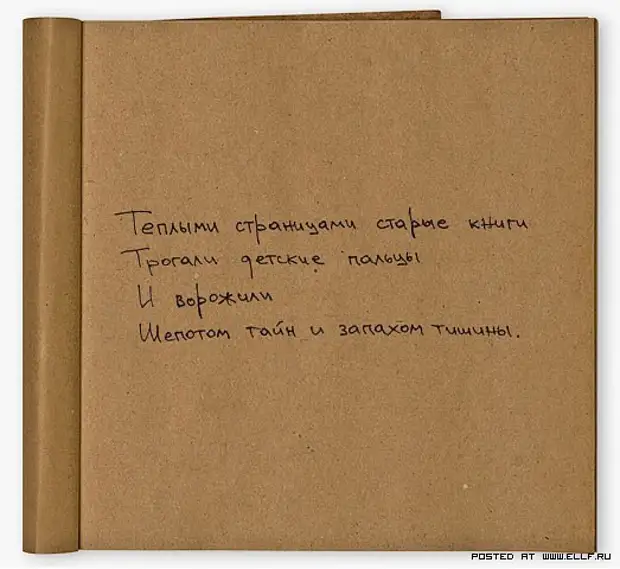 Теплыми страницами старые книги
Трогали детские пальцы
И ворожили
Шепотом тайн и запахом тишины.
POSTED AT WWW.ELLF.RU